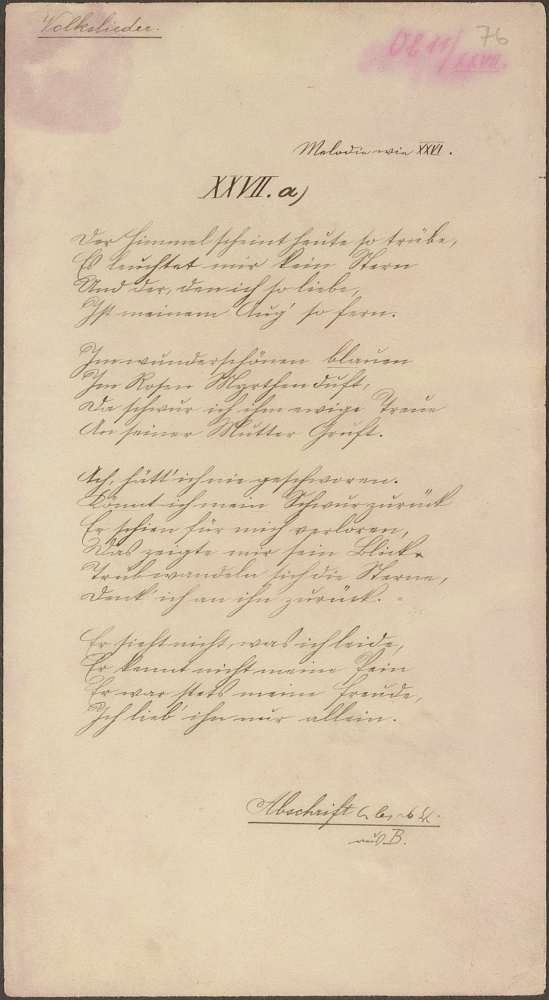 Volkslieder.
0211/ 76
XXVII.
Melodie wie XXVI.
XXVII. a)
Der Himmel scheint heute so trübe,
Es leuchtet mir kein Stern
Und der, den ich so liebe,
Ist meinem Aug' so fern.
Im wunderschönen blauen
Im Rosen Myrthenduft,
Da schwur ich ihm ewige Treue
An seiner Mutter Gruft.
Ach, hätt' ich nie geschworen.
Könnt ich mein Schwur zurück
Er schien für mich verloren,
Das zeigte mir sein Blick.
Trüb wandeln sich die Sterne,
Denk' ich an ihn zurück.
Er sieht nicht, was ich leide,
Er kennt nicht meine Pein
Er war stets meine Freude,
Ich lieb' ihn nur allein.
Abschrift
aus B.